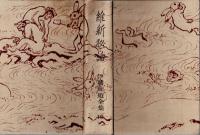 維新秘話
伊藤痴遊全集